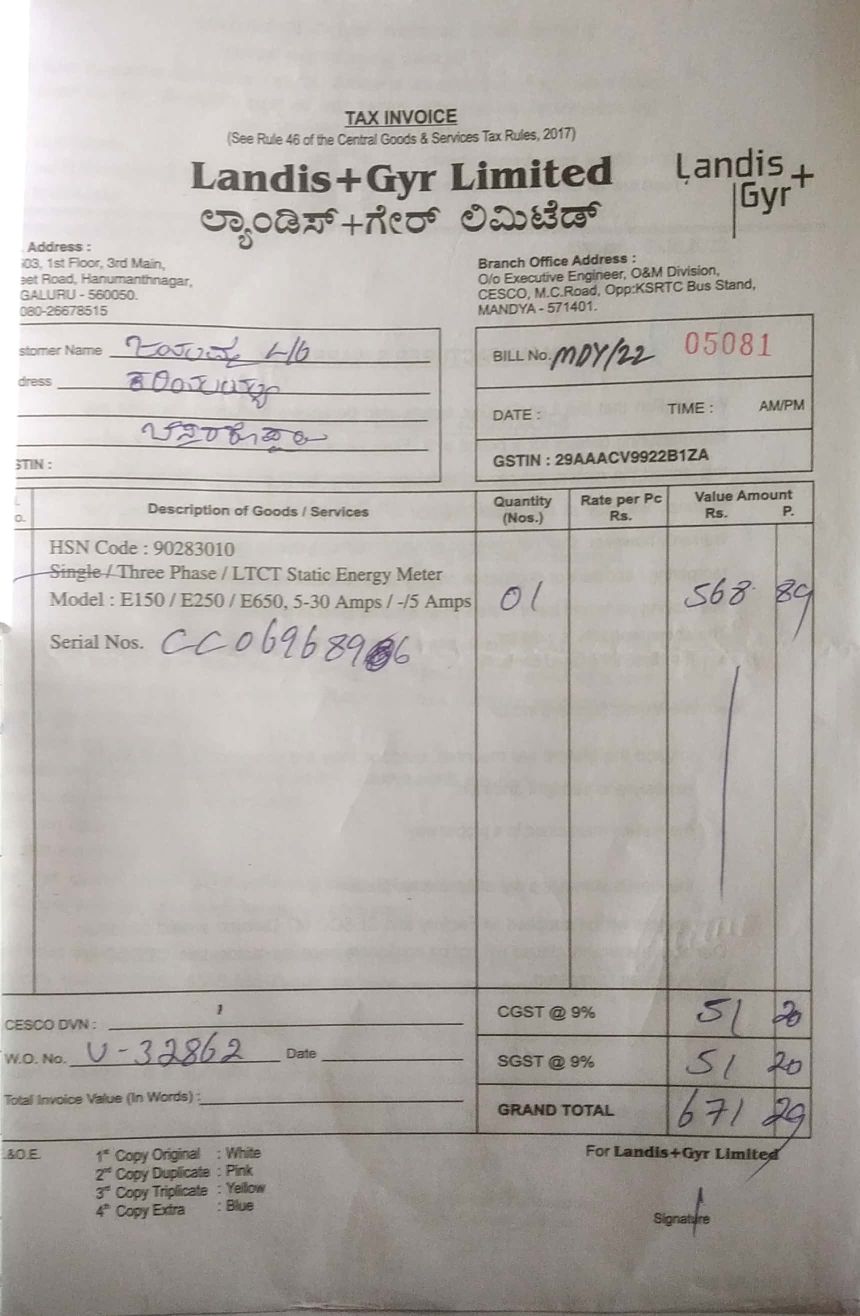 TAX INVOICE
(See Rule 46 of the Central Goods & Services Tax Rules, 2017)
Landis+Gyr Limited
ಲ್ಯಾಂಡಿಸ್+ಗೇರ್ ಲಿಮಿಟೆಡ್
Landis+
Gyr
Address :
03, 1st Floor, 3rd Main,
eet Road, Hanumanthnagar,
GALURU - 560050.
080-26678515
Branch Office Address :
O/o Executive Engineer, O&M Division,
CESCO, M.C.Road, Opp:KSRTC Bus Stand,
MANDYA - 571401.
stomer Name
dress
STIN :
BILL No. MDY/22 05081
DATE : TIME : AM/PM
GSTIN : 29AAACV9922B1ZA
Description of Goods / Services Quantity (Nos.) Rate per Pc Rs. Value Amount Rs. P.
HSN Code : 90283010
Single / Three Phase / LTCT Static Energy Meter
Model : E150 / E250 / E650, 5-30 Amps / -/5 Amps 01 568 89
Serial Nos. CC06968986
CESCO DVN : CGST @ 9% 51 20
W.O. No. U-32862 Date SGST @ 9% 51 20
Total Invoice Value (In Words) : GRAND TOTAL 671 29
.&O.E.
1st Copy Original : White
2nd Copy Duplicate : Pink
3rd Copy Triplicate : Yellow
4th Copy Extra : Blue
For Landis+Gyr Limited
Signature